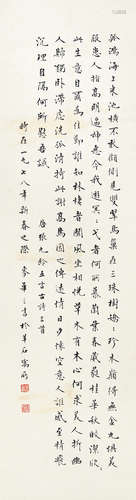 孤鴻海上來池潢不敢顧側見雙翠鳥巢在三珠樹矯〻珍木顛得無金丸懼美
服患人指高明逼神惡今我遊冥〻弋者何所慕蘭葉春葳蕤桂華秋皎潔欣〻
此生意自爾為佳節誰知林棲者聞風坐相悅草木有本心何求美人折幽
人歸獨卧滯慮洗孤清持此謝高鳥因之傳遠情日夕懷空意人誰感至精飛
沉理自隔何所慰吾誠 唐張九齡五言古詩三首
時在一九七八年新春之際 華之書於羊石